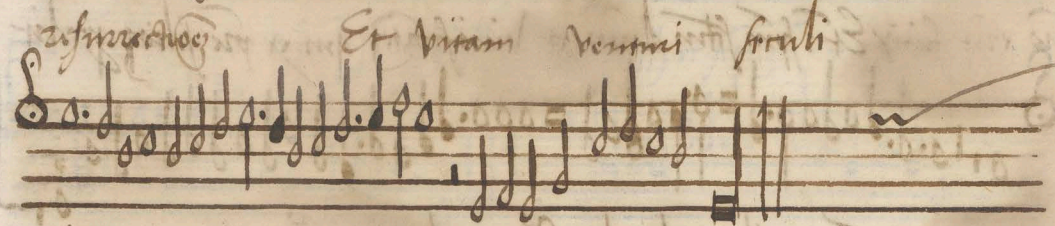 resurrectionem Et vitam venturi seculi